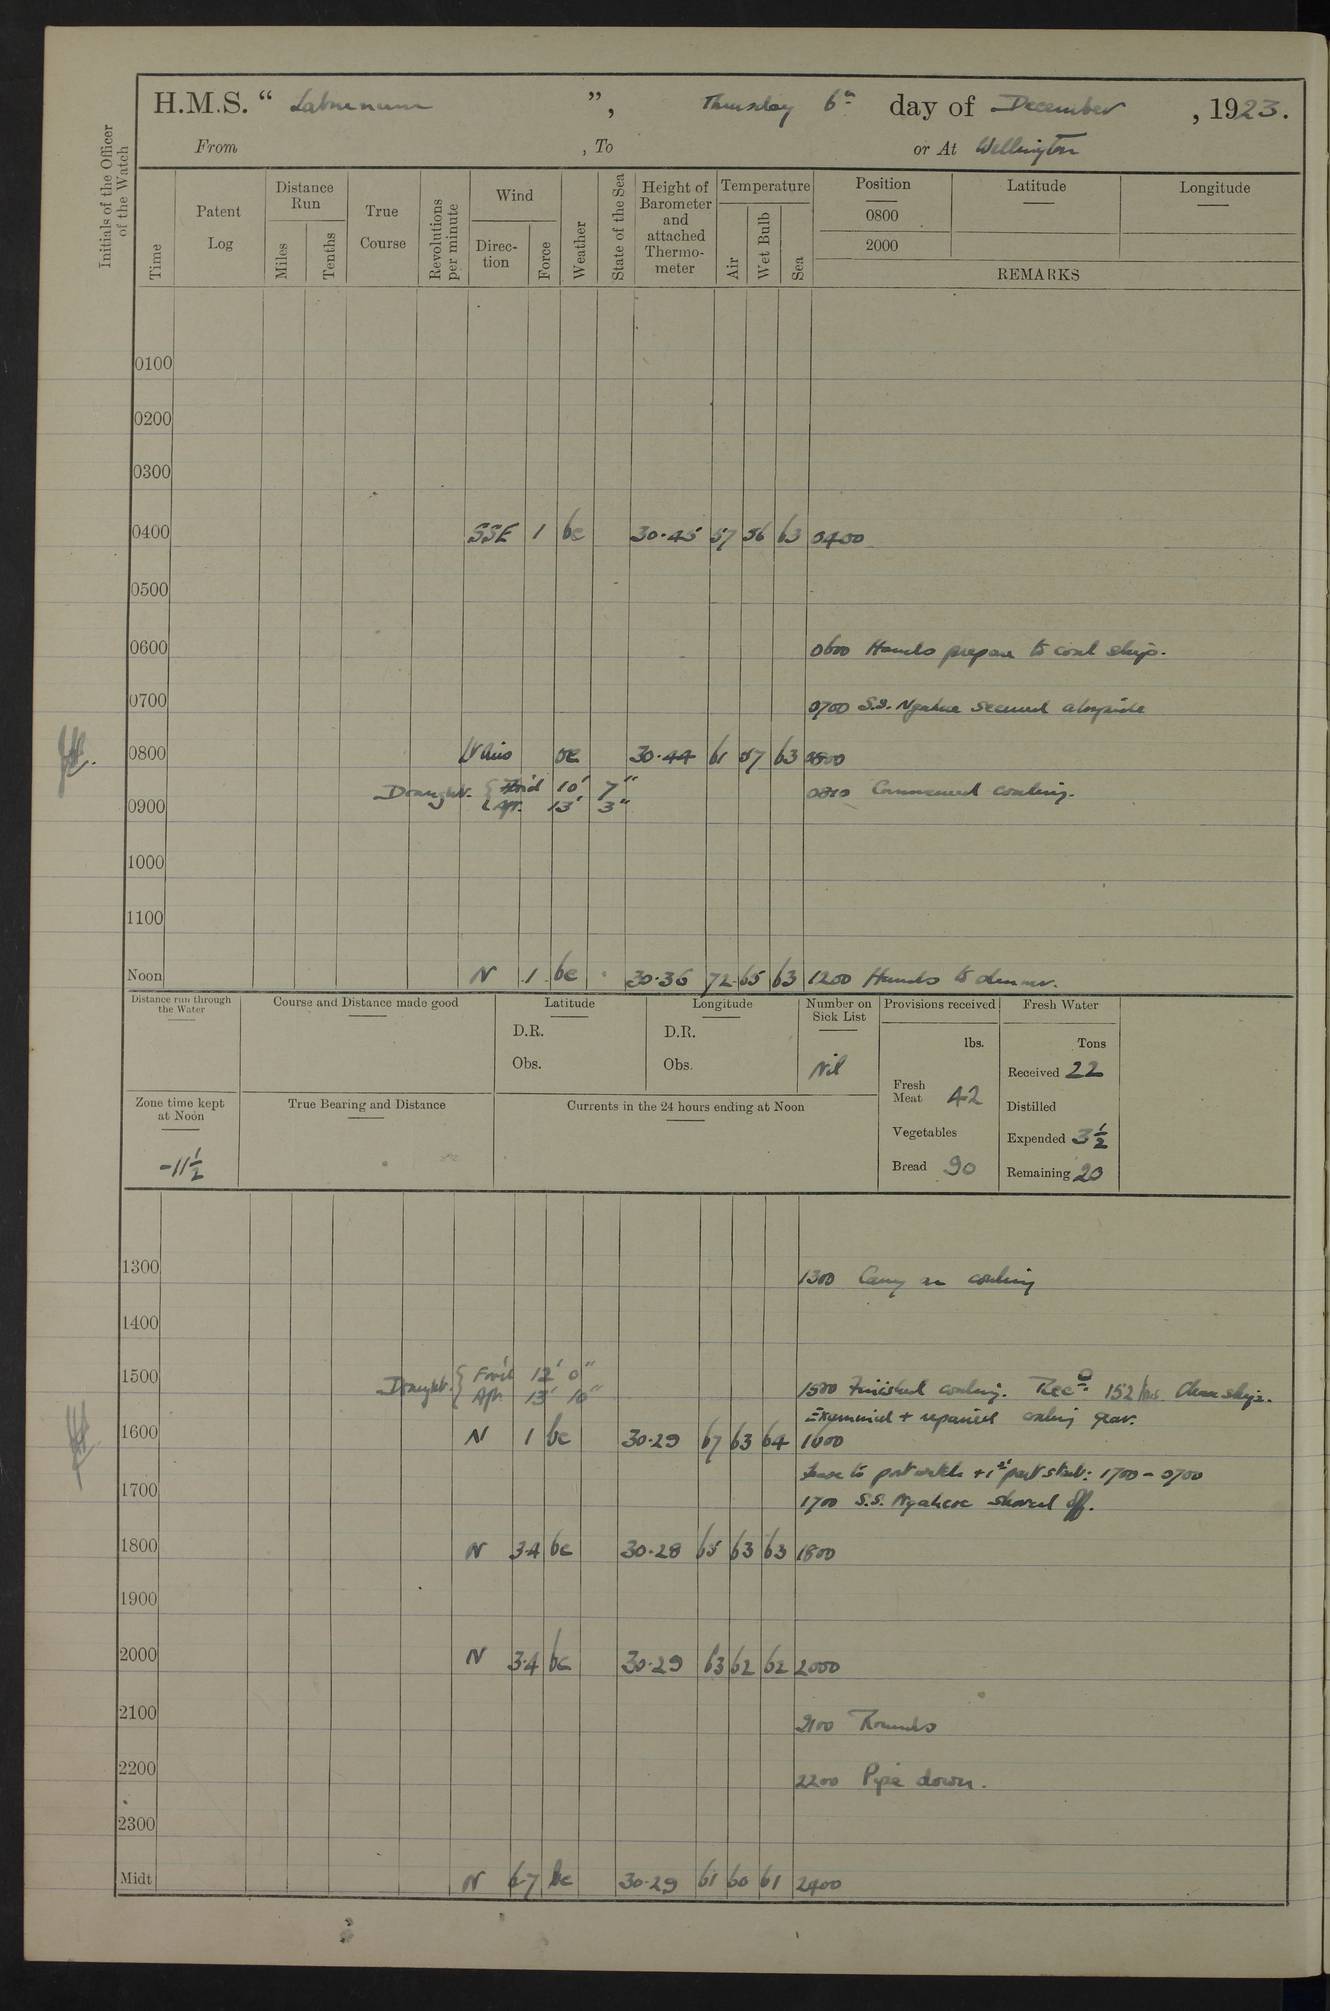 H.M.S. “ Laburnum ”, Thursday 6th day of December , 1923.
From , To or At Wellington
Initials of the Officer of the Watch
Time
Patent Log
Distance Run
Miles
Tenths
True Course
Revolutions per minute
Wind
Direc-tion
Force
Weather
State of the Sea
Height of Barometer and attached Thermo-meter
Temperature
Air
Wet Bulb
Sea
Position Latitude Longitude
0800
2000
REMARKS
0100
0200
0300
0400 SSE 1 bc 30.45 57 56 63 0400
0500
0600 0600 Hands prepare to coal ship.
0700 0700 S.S. Ngahere secured alongside
0800 Vars bc 30.44 61 57 63 0800
Draught. { For'd 10' 7" 0810 Commenced coaling.
0900 Aft. 13' 3"
1000
1100
Noon N 1 bc 30.36 72 65 63 1200 Hands to dinner.
Distance run through the Water
Course and Distance made good
Latitude
D.R.
Obs.
Longitude
D.R.
Obs.
Number on Sick List
Nil
Provisions received
lbs.
Fresh Meat 42
Vegetables
Bread 90
Fresh Water
Tons
Received 22
Distilled
Expended 3½
Remaining 20
Zone time kept at Noon
-11½
True Bearing and Distance
Currents in the 24 hours ending at Noon
1300 1300 Carry on coaling
1400
1500 Draught. { For'd 12' 0"
Aft. 13' 10" 1500 Finished coaling. Recd. 152 tons. Clean ship.
Examined + repaired coaling gear.
1600 N 1 bc 30.29 67 63 64 1600
Leave to port watch + 1st part stab: 1700 - 0700
1700 1700 S.S. Ngahere shoved off.
1800 N 3.4 bc 30.28 65 63 63 1800
1900
2000 N 3.4 bc 30.29 63 62 62 2000
2100 2100 Rounds
2200 2200 Pipe down.
2300
Midt N 6.7 bc 30.29 61 60 61 2400